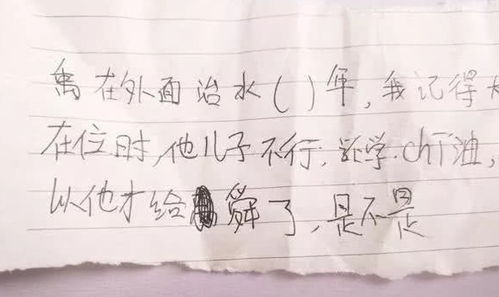 禹在外面治水( )年,我记得
在位时,他儿子不行,학学.chī油,
以他才给舜了,是不是